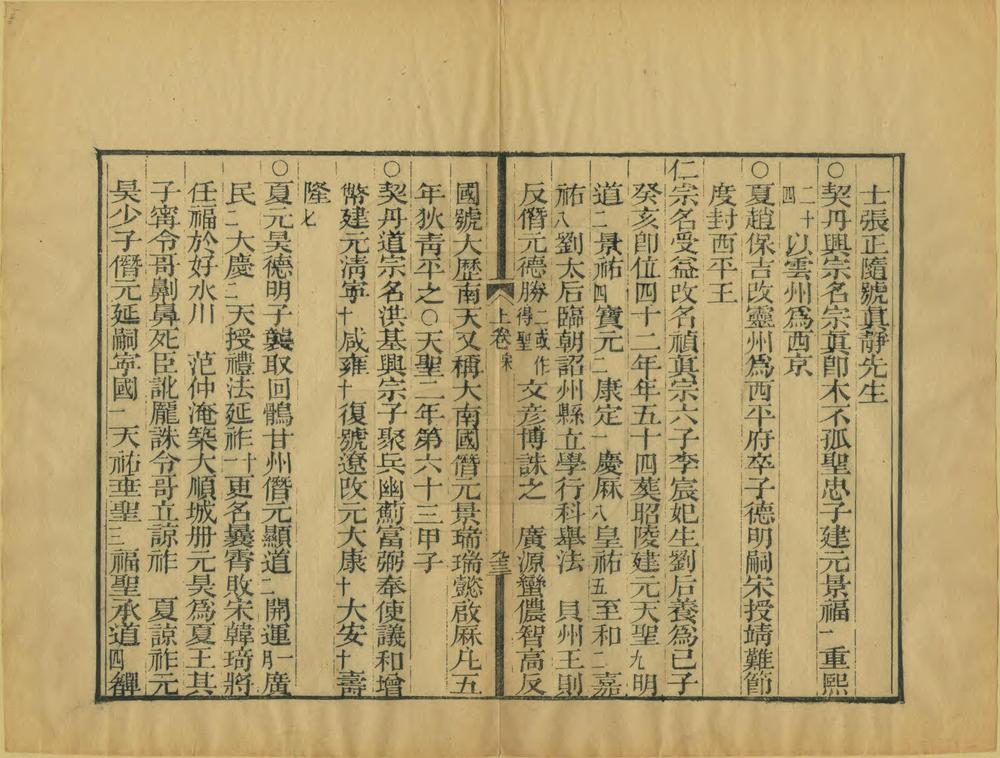 士張正隨號眞靜先生
○契丹興宗名宗眞卽木不孤聖忠子建元景福一重熙
二十四以雲州爲西京
○夏趙保吉改靈州爲西平府卒子德明嗣宋授靖難節
度封西平王
仁宗名受益改名禎眞宗六子李宸妃生劉后養爲己子
癸亥卽位四十二年年五十四葬昭陵建元天聖九明
道二景祐四寶元二康定一慶厤八皇祐五至和二嘉
祐八劉太后臨朝詔州縣立學行科舉法 貝州王則
反僭元德勝二或作得聖文彥博誅之 廣源蠻儂智高反
上卷 宋
國號大歷南天又稱大南國僭元景瑞瑞懿啟厤凡五
年狄靑平之○天聖二年第六十三甲子
○契丹道宗名洪基興宗子聚兵幽薊富弼奉使議和增
幣建元淸寧十咸雍十復號遼改元大康十大安十壽
隆七
○夏元昊德明子襲取回鶻甘州僭元顯道二開運一月廣
民二大慶二天授禮法延祚十一更名曩霄敗宋韓琦將
任福於好水川 范仲淹築大順城册元昊爲夏王其
子甯令哥劓鼻死臣訛龐誅令哥立諒祚 夏諒祚元
昊少子僭元延嗣寜國一天祐垂聖三福聖承道四